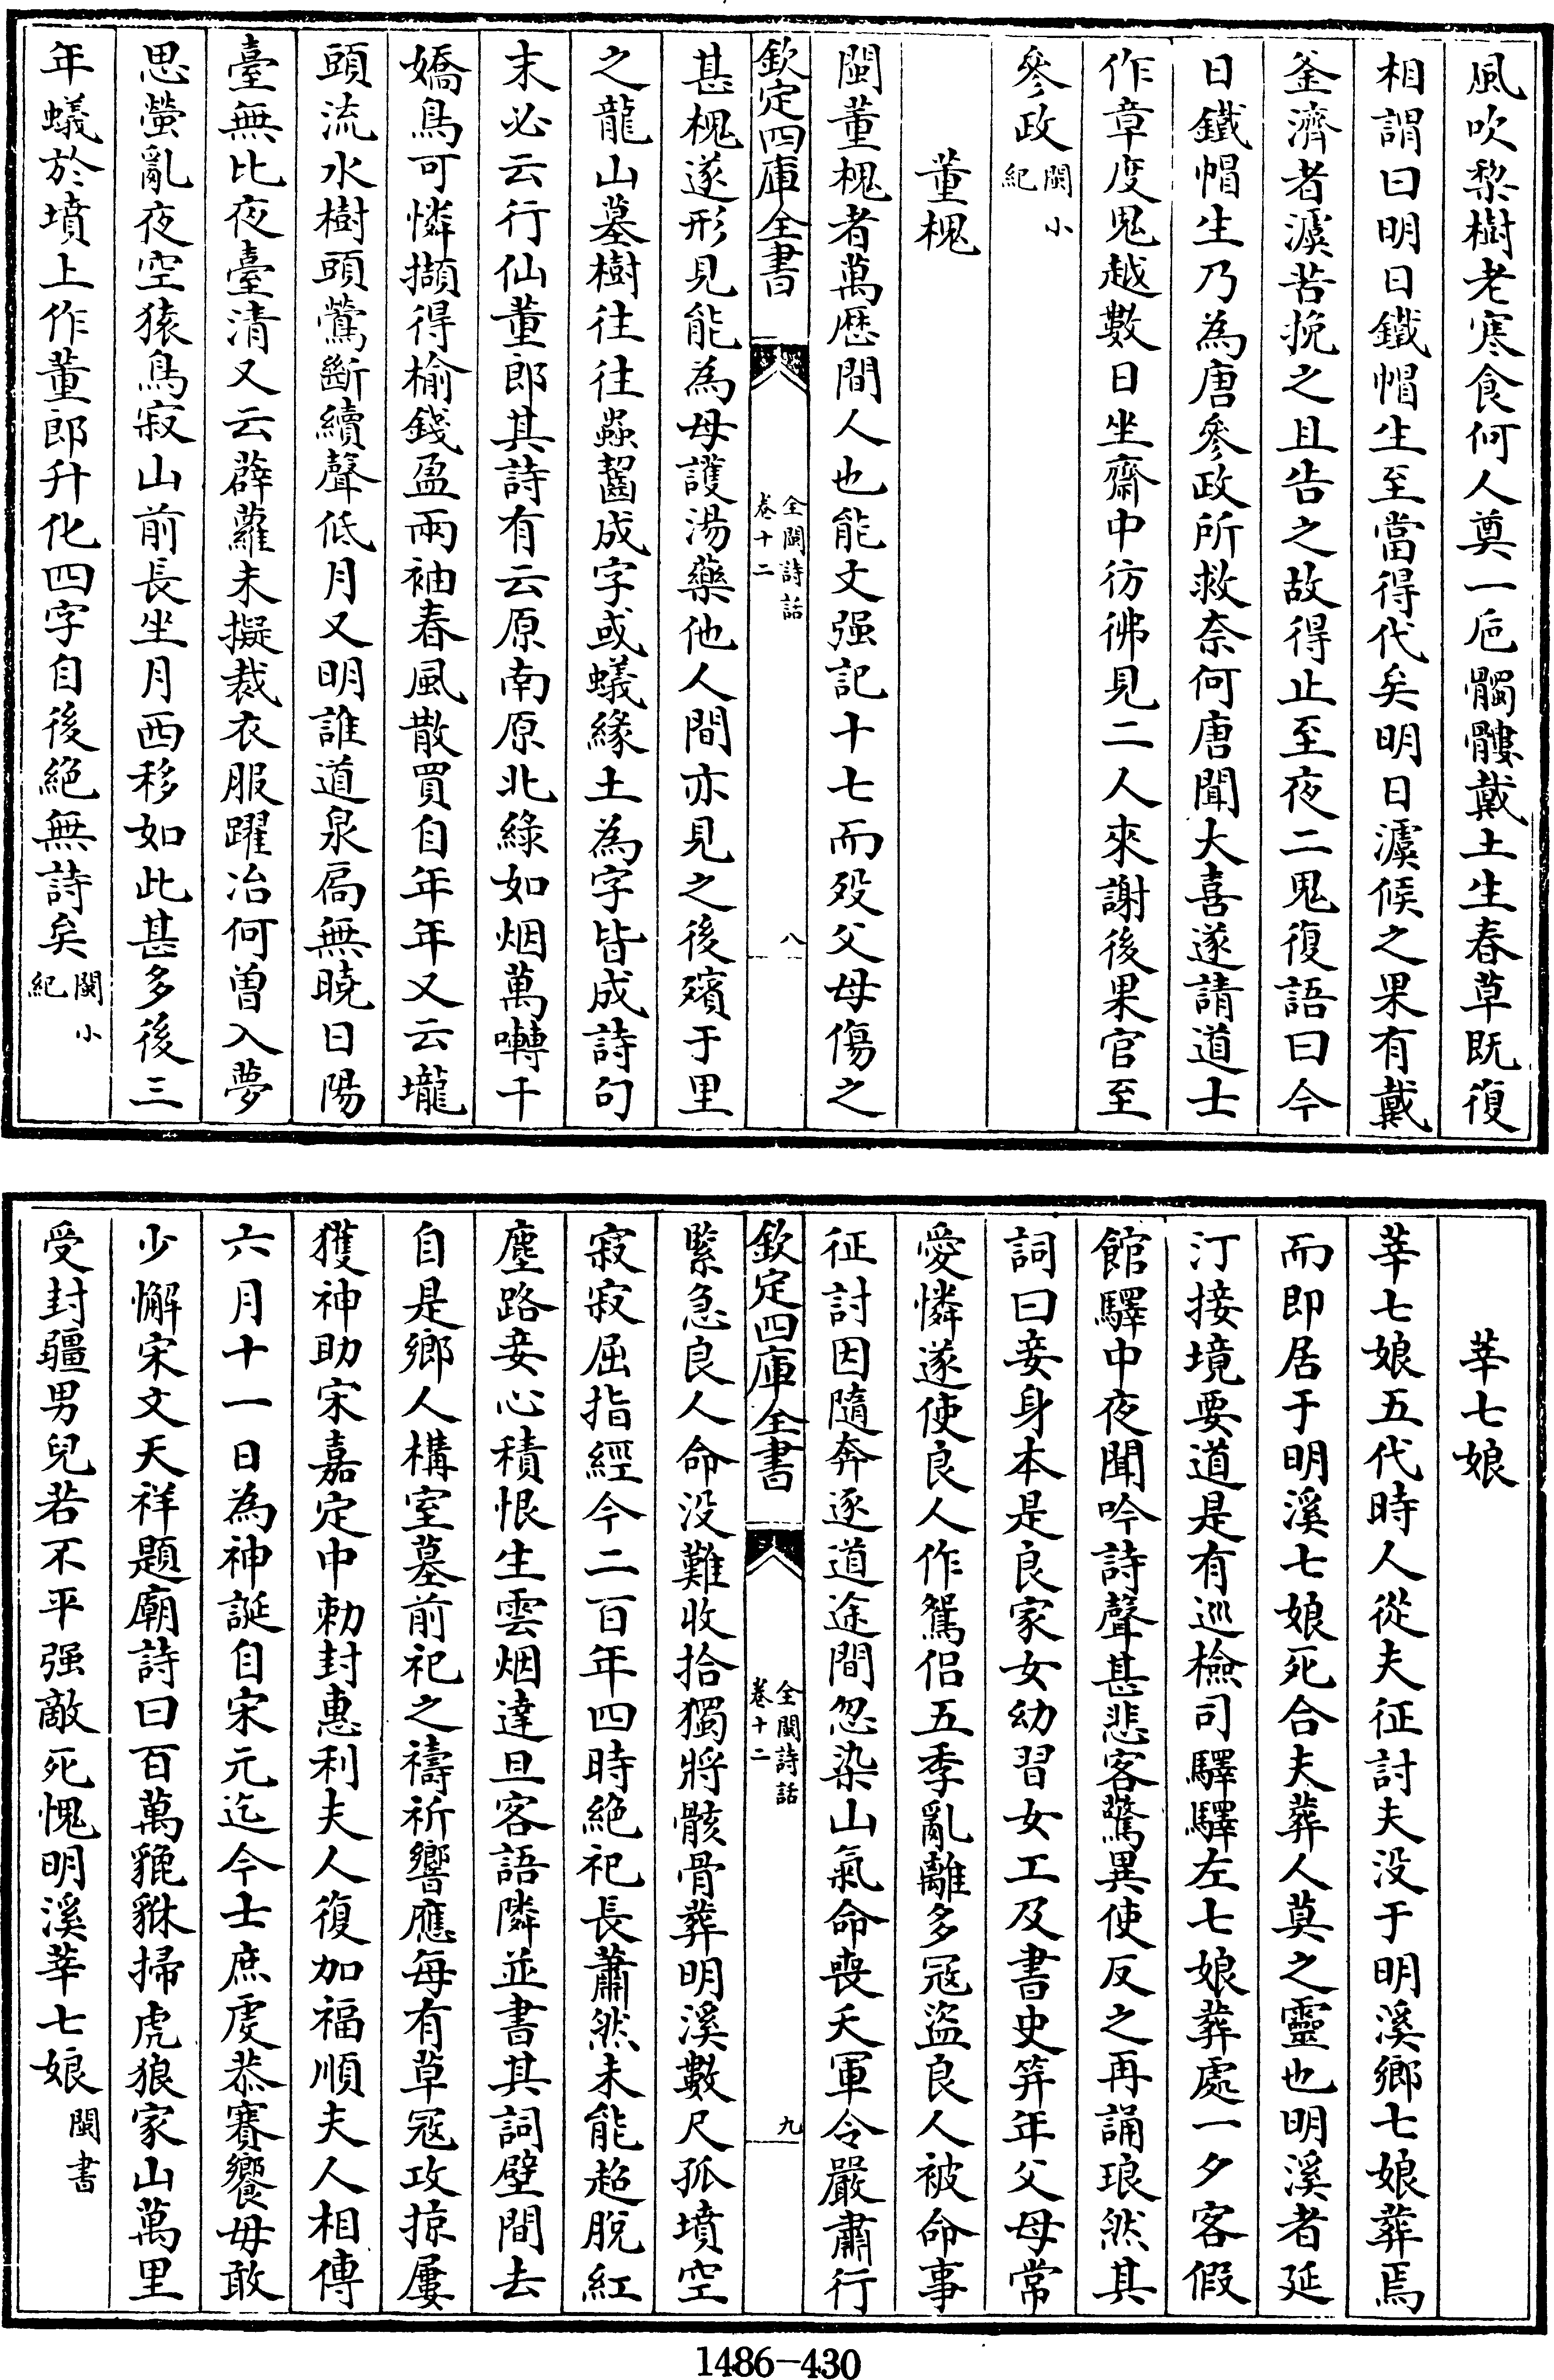 風吹棃樹老寒食何人奠一巵髑髏戴土生春草既復
相謂曰明日鐵帽生至當得代矣明日澞候之果有戴
釜濟者澞苦挽之且告之故得止至夜二鬼復語曰今
日鐵帽生乃為唐參政所救奈何唐聞大喜遂請道士
作章度鬼越數日坐齋中彷彿見二人來謝後果官至
參政閩小紀
董槐
閩董槐者萬歴間人也能文强記十七而殁父母傷之
欽定四庫全書
全閩詩話
卷十二
八
甚槐遂形見能為母護湯藥他人間亦見之後殯于里
之龍山墓樹往往蟲齧成字或蟻緣土為字皆成詩句
末必云行仙董郎其詩有云原南原北綠如烟萬囀千
嬌鳥可憐擷得榆錢盈兩袖春風散買自年年又云壠
頭流水樹頭鶯斷續聲低月又明誰道泉扃無曉日陽
臺無比夜臺清又云薜蘿未擬裁衣服躍冶何曾入夢
思螢亂夜空猿鳥寂山前長坐月西移如此甚多後三
年蟻於墳上作董郎升化四字自後絕無詩矣閩小紀
莘七娘
莘七娘五代時人從夫征討夫没于明溪鄉七娘葬焉
而即居于明溪七娘死合夫葬人莫之靈也明溪者延
汀接境要道是有巡檢司驛驛左七娘葬處一夕客假
館驛中夜聞吟詩聲甚悲客驚異使反之再誦琅然其
詞曰妾身本是良家女幼習女工及書史笄年父母常
愛憐遂使良人作鴛侣五季亂離多宼盜良人被命事
征討因隨奔逐道途間忽染山氣命喪夭軍令嚴肅行
欽定四庫全書
全閩詩話
卷十二
九
緊急良人命没難收拾獨將骸骨葬明溪數尺孤墳空
寂寂屈指經今二百年四時絕祀長蕭然未能超脫紅
塵路妾心積恨生雲烟達旦客語隣並書其詞壁間去
自是鄉人構室墓前祀之禱祈響應每有草宼攻掠屢
獲神助宋嘉定中勅封惠利夫人復加福順夫人相傳
六月十一日為神誕自宋元迄今士庶虔恭賽饗毋敢
少懈宋文天祥題廟詩曰百萬貔貅掃虎狼家山萬里
受封疆男兒若不平强敵死愧明溪莘七娘閩書
1486-430